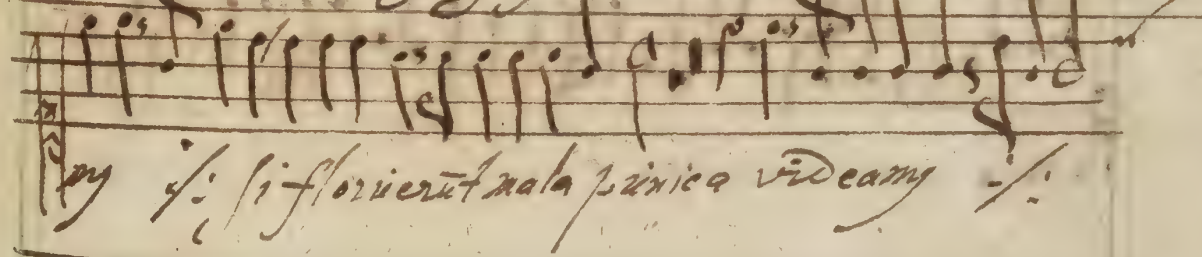 mꝰ ·/: si floruerūt mala punica videamꝰ ·/: